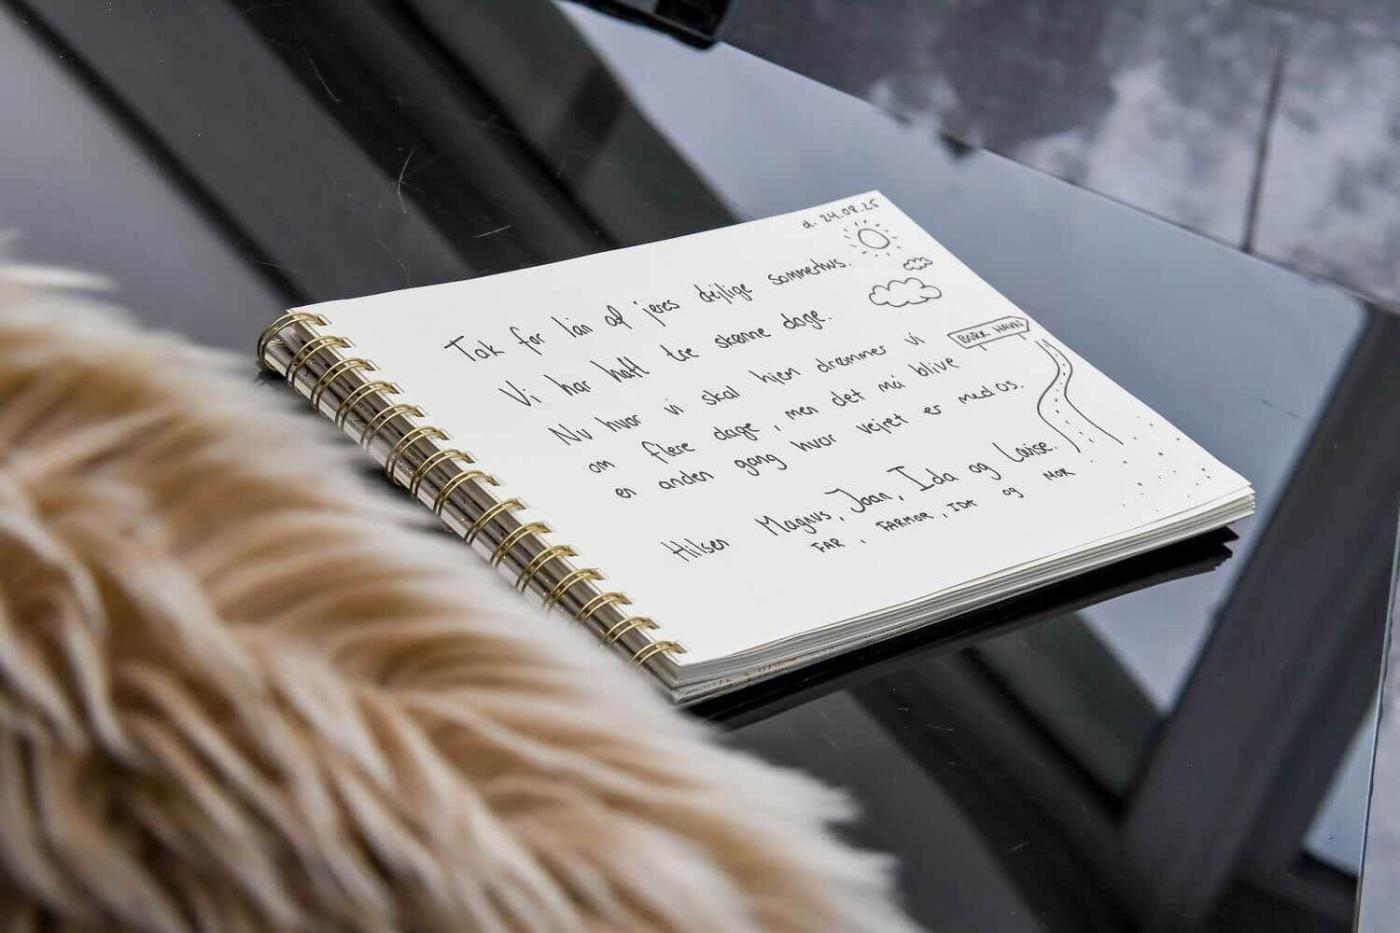 d. 24.08.25
Tak for lån af jeres dejlige sommerhus.
Vi har haft tre skønne dage.
Nu hvor vi skal hjem drømmer vi
om flere dage, men det må blive
en anden gang hvor vejret er med os.
Hilsen Magnus, Joan, Ida og Louise.
FAR, FARMOR, IDA og MOR
BORK HAVN